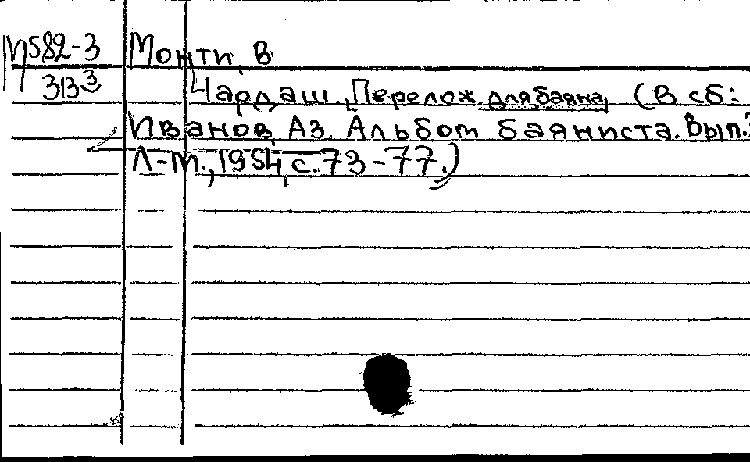 М582-3 Монти, В
313³ Чардаш, Перелож. для баяна, (В сб:
Иванов, Аз. Альбом баяниста. Вып.
Л-М., 1954, с. 73-77.)